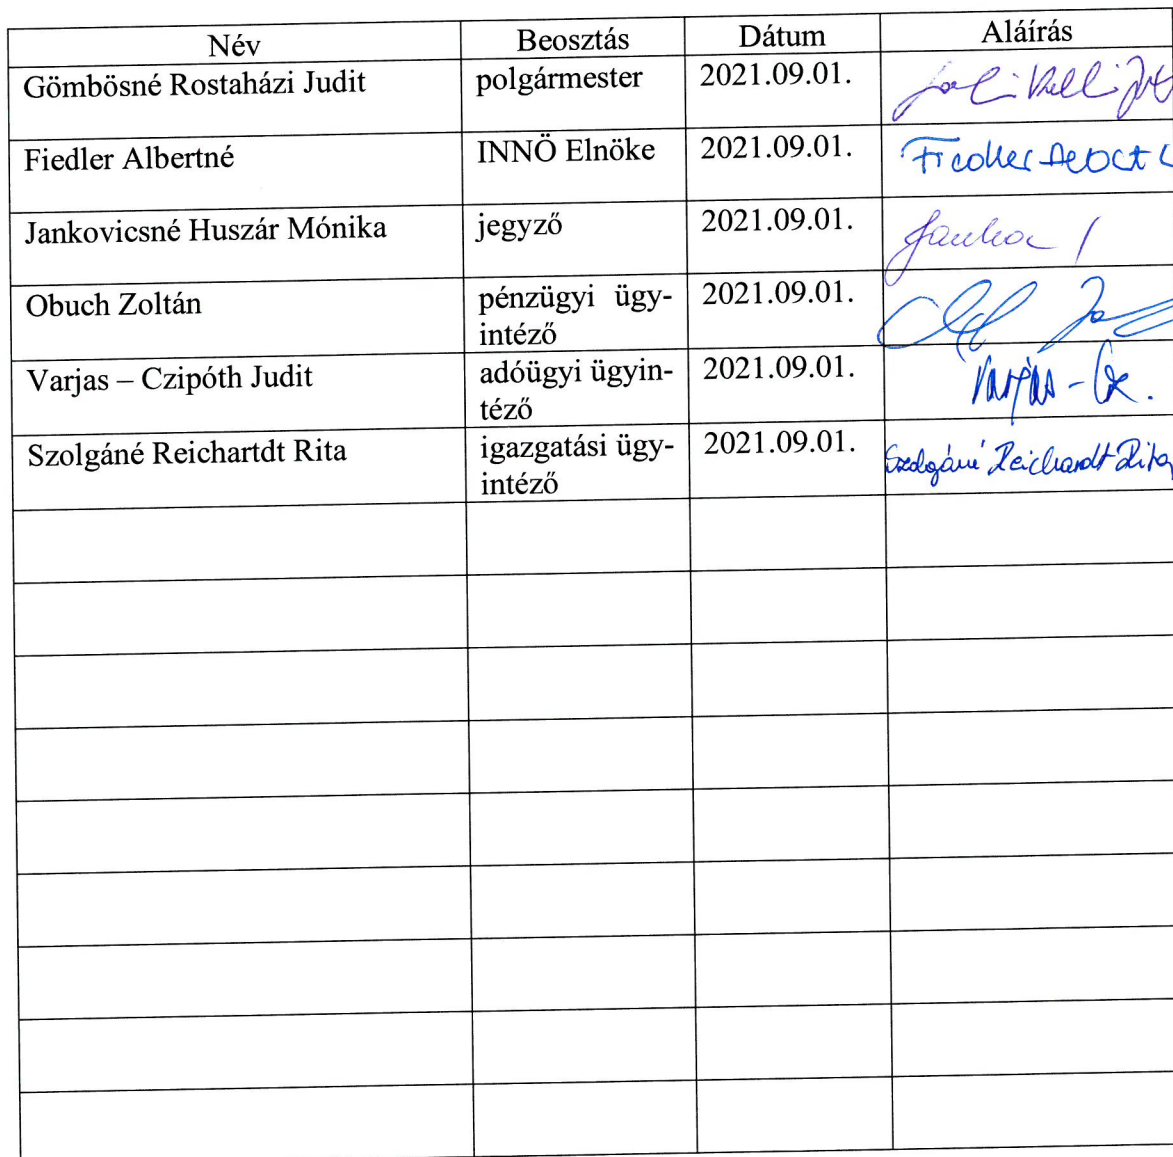 Név Beosztás Dátum Aláírás
Gömbösné Rostaházi Judit polgármester 2021.09.01.
Fiedler Albertné INNÖ Elnöke 2021.09.01. Fiedler
Jankovicsné Huszár Mónika jegyző 2021.09.01.
Obuch Zoltán pénzügyi ügy-
intéző 2021.09.01.
Varjas – Czipóth Judit adóügyi ügyin-
téző 2021.09.01. Varjas - Cz.
Szolgáné Reichartdt Rita igazgatási ügy-
intéző 2021.09.01. Szolgáné Reichardt Rita